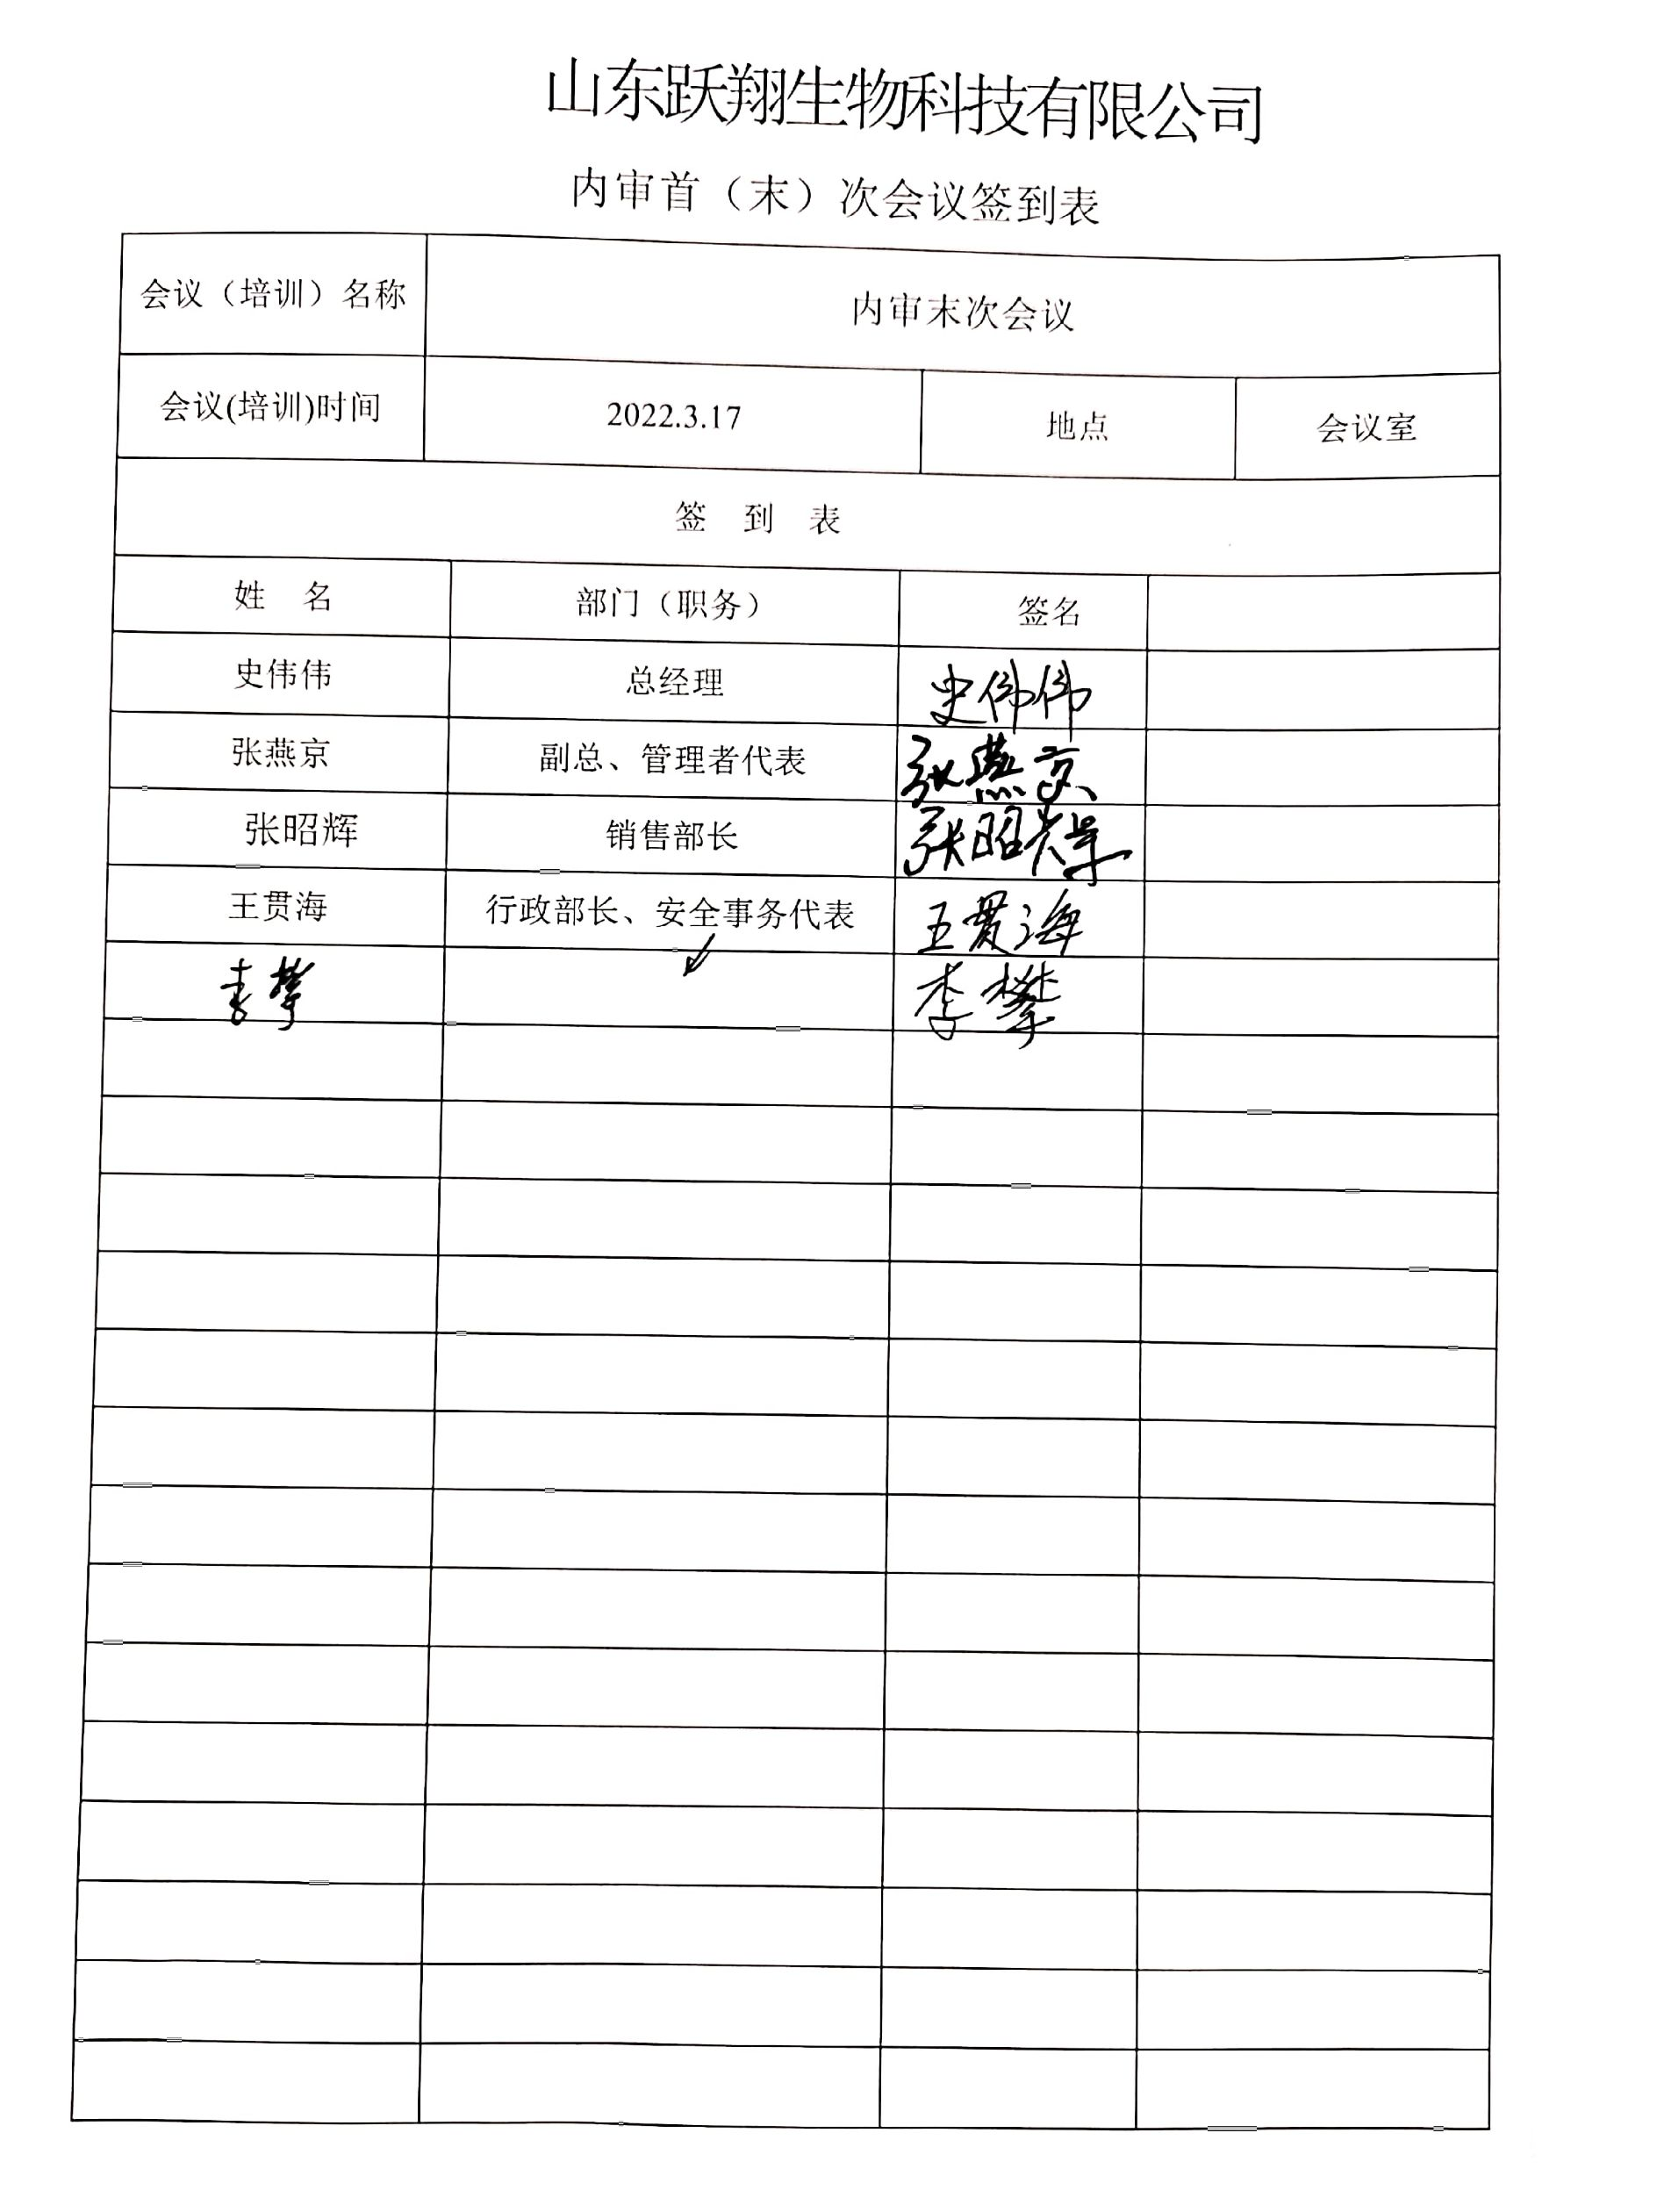 山东跃翔生物科技有限公司
内审首（末）次会议签到表
会议（培训）名称 内审末次会议
会议(培训)时间 2022.3.17 地点 会议室
签 到 表
姓 名 部门（职务） 签名
史伟伟 总经理 史伟伟
张燕京 副总、管理者代表 张燕京
张昭辉 销售部长 张昭辉
王贯海 行政部长、安全事务代表 王贯海
李攀 李攀